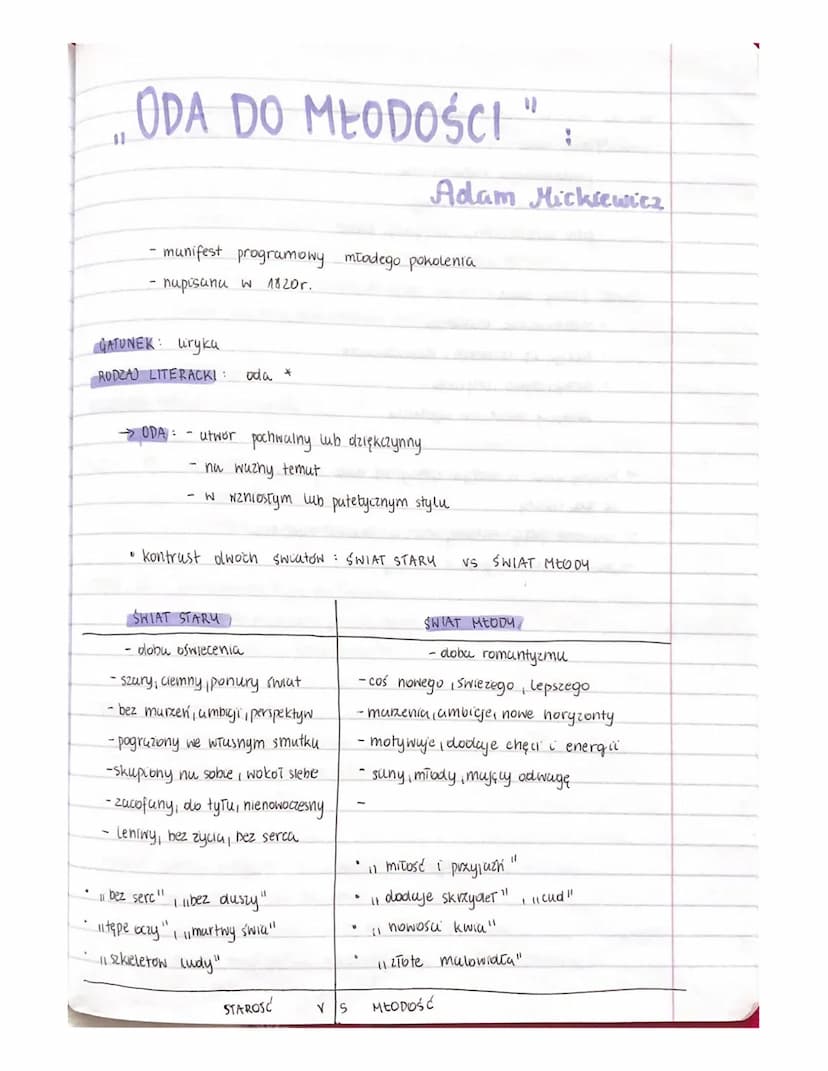 „ODA DO MŁODOŚCI":
Adam Mickiewicz
- manifest programowy młodego pokolenia
- napisana w 1820r.
GATUNEK: liryka
RODZAJ LITERACKI: oda *
→ ODA: - utwór pochwalny lub dziękczynny
- na ważny temat
- w wzniosłym lub patetycznym stylu
• kontrast dwóch światów: ŚWIAT STARY vs ŚWIAT MŁODY
ŚWIAT STARY ŚWIAT MŁODY
- doba oświecenia - doba romantyzmu
- szary, ciemny, ponury świat - coś nowego, świeżego, lepszego
- bez marzeń, ambicji, perspektyw - marzenia, ambicje, nowe horyzonty
- pogrążony we własnym smutku - motywuje, dodaje chęci i energii
- skupiony na sobie, wokół siebie - silny, młody, mający odwagę
- zacofany, do tyłu, nienowoczesny -
- leniwy, bez życia, bez serca
• „miłość i przyjaźń"
• „bez serc", „bez duszy" • „dodaje skrzydeł", „cud"
• „tępe oczy", „martwy świa" • „nowości kwia"
• „szkieletów ludy" • „złote malowidła"
STAROŚĆ VS MŁODOŚĆ